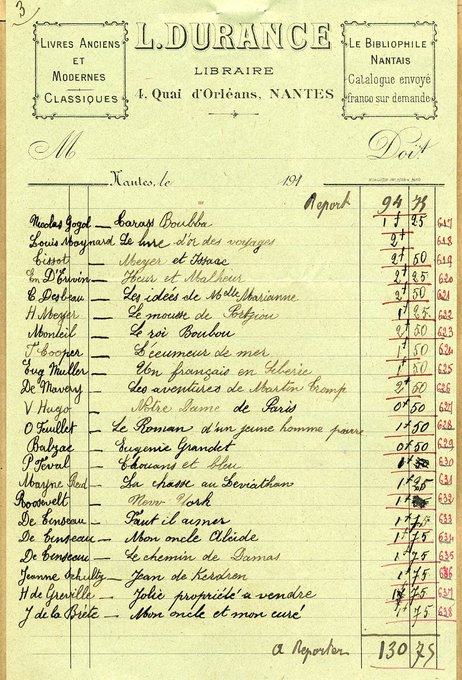 3
LIVRES ANCIENS
ET
MODERNES
CLASSIQUES
L. DURANCE
LIBRAIRE
4, Quai d'Orléans, NANTES
LE BIBLIOPHILE
NANTAIS
Catalogue envoyé
franco sur demande
M Doit
Nantes, le 191
Report 94 75
Nicolas Gogol — Tarass Boubba 1f 25 617
Louis Maynard Le livre d'or des voyages 2f 618
Cissot — Meyer et Isaac 2f 50 619
En D'Ervin — Heur et Malheur 2f 25 620
C. Desbeau — Les idées de Mdlle Marianne 2f 50 621
H Meyer — Le mousse de 1f 25 622
Monteil — Le roi Boubou 2f 50 623
F. Cooper — L'écumeur de mer 1f 50 624
Eug Muller — Un français en Sibérie 1f 50 625
De Navery — Les aventures de Martin Tromp 2f 50 626
V Hugo — Notre Dame de Paris 0f 50 627
O Feuillet — Le Roman d'un jeune homme pauvre 1f 50 628
Balzac — Eugenie Grandet 0f 50 629
P Féval — Chouans et bleu 50 630
Mayne Reid — La chasse au Leviathan 1f 631
Roosevelt — New York 1f 632
De Cinseau — Faut il aimer 1f 75 633
De Cinseau — Mon oncle Alcide 1f 75 634
De Cinseau — Le chemin de Damas 1f 75 635
Jeanne Schultz — Jean de Kerdren 1f 75 636
H de Greville — Jolie propriété a vendre 1f 75 637
J de la Brète — Mon oncle et mon curé 1f 75 638
a Reporter 130 75